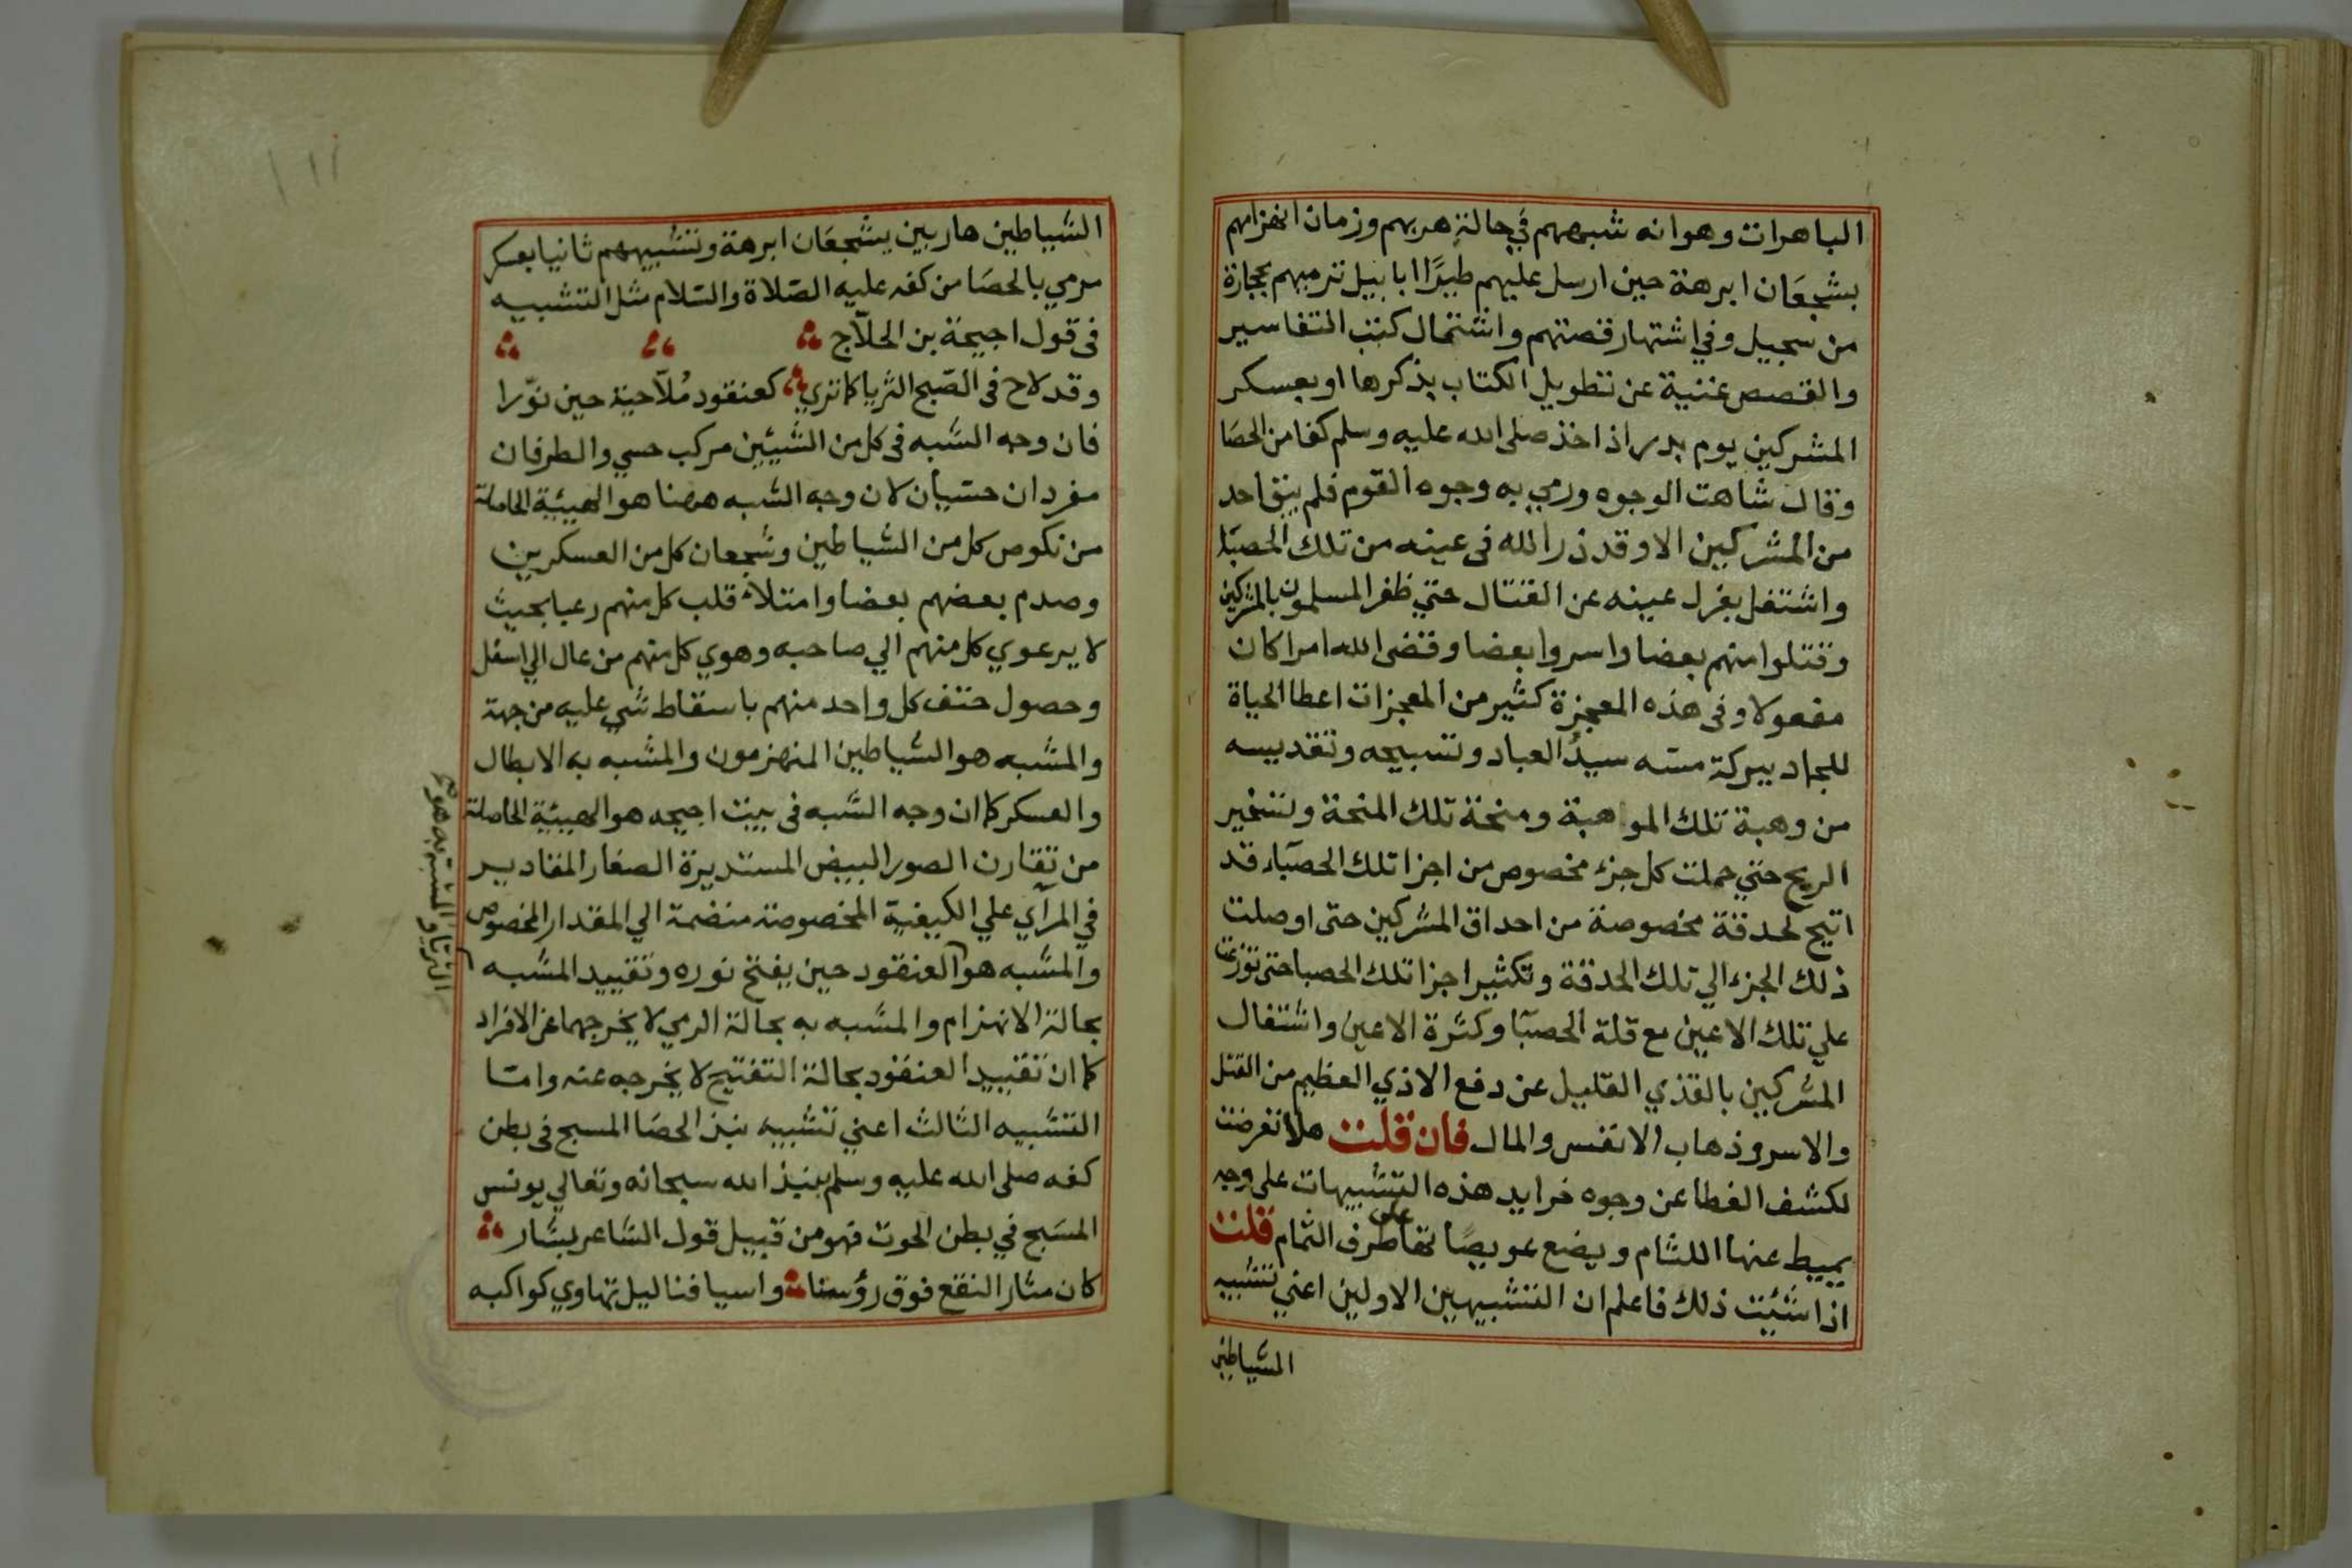 الباهرات وهو انه شبههم في حالة هربهم وزمان انهزامهم
بشجعان ابرهة حين ارسل عليهم طيرًا ابابيل ترميهم بحجارة
من سجيل وفي اشتهار قصتهم واشتمال كتب التفاسير
والقصص غنية عن تطويل الكتاب بذكرها او بعسكر
المشركين يوم بدر اذ اخذ صلى الله عليه وسلم كفا من الحصا
وقال شاهت الوجوه ورمي به وجوه القوم فلم يبق احد
من المشركين الا وقد ذر الله فى عينه من تلك الحصبا
واشتغل بغزل عينه عن القتال حتي ظفر المسلمون بالمشركين
وقتلوا منهم بعضا واسروا بعضا وقضى الله امرا كان
مفعولا وفى هذه المعجزة كثير من المعجزات اعطا الحياة
للجماد ببركة مسه سيدُ العباد وتسبيحه وتقديسه
من وهبة تلك المواهبة ومنحة تلك المنحة وتسخير
الريح حتي حملت كل جزء مخصوص من اجزا تلك الحصبآء قد
اتيح لحدقة مخصوصة من احداق المشركين حتى اوصلت
ذلك الجزء الي تلك الحدقة وتكثير اجزا تلك الحصبا حتى توزعت
علي تلك الاعين مع قلة الحصبآ وكثرة الاعين واشتغال
المشركين بالقذي القليل عن دفع الاذي العظيم من القتل
والاسر وذهاب الانفس والمال فان قلت هلا تعرضت
لكشف الغطا عن وجوه خرايد هذه التشبيهات على وجه
يميط عنها اللثام ويضع عويصًا تها على طرف الثمام قلت
اذا شئت ذلك فاعلم ان التشبيهين الاولين اعني تشبيه
الشياطين
الشياطين هاربين بشجعان ابرهة وتشبيههم ثانيا بعسكر
رمي بالحصا من كفه عليه الصلاة والسلام مثل التشبيه
فى قول احيحة بن الحلاّج
وقد لاح فى الصبح الثريا كما تري كعنقود مُلاّحية حين نوّرا
فان وجه الشبه فى كل من الشيئين مركب حسي والطرفان
مفردان حسيان لان وجه الشبه ههنا هو الهيئة الحاصلة
من نكوص كل من الشياطين وشجعان كل من العسكرين
وصدم بعضهم بعضا وامتلاء قلب كل منهم رعبا بحيث
لا يرعوي كل منهم الي صاحبه وهوي كل منهم من عال الي اسفل
وحصول حتف كل واحد منهم باسقاط شي عليه من جهة
والمشبه هو الشياطين المنهزمون والمشبه به الابطال
والعسكر كما ان وجه الشبه فى بيت احيحه هو الهيئة الحاصلة
من تقارن الصور البيض المستديرة الصغار المقادير
في المرآي علي الكيفية المخصوصة منضمة الي المقدار المخصوص
والمشبه هو العنقود حين يفتح نوره وتقييد المشبه
الثريا والمشبه به هو
بحالة الانهزام والمشبه به بحالة الرمي لا يخرجهما عن الافراد
كما ان تقييد العنقود بحالة التفتيح لا يخرجه عنه واما
التشبيه الثالث اعني تشبيه نبذ الحصا المسبح فى بطن
كفه صلى الله عليه وسلم بنبذ الله سبحانه وتعالي يونس
المسبح في بطن الحوت فهو من قبيل قول الشاعر بشار
كان مثار النقع فوق رؤسنا واسيافنا ليل تهاوي كواكبه